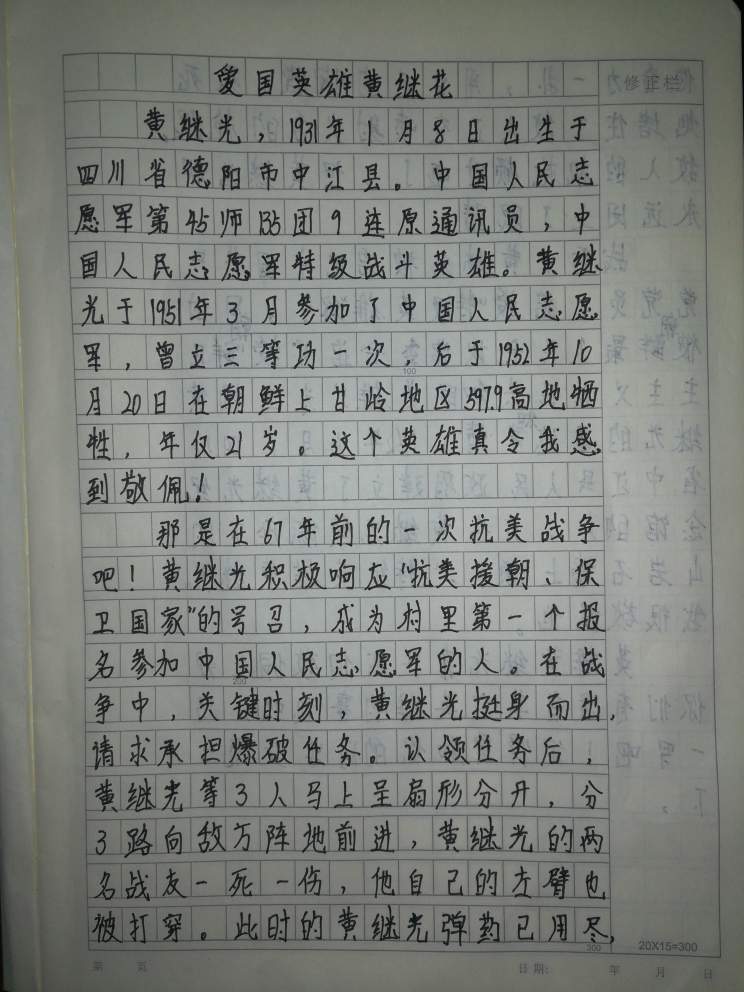 爱国英雄黄继花
修正栏
黄继光，1931年1月8日出生于
四川省德阳市中江县。中国人民志
愿军第45师135团9连原通讯员，中
国人民志愿军特级战斗英雄。黄继
光于1951年3月参加了中国人民志愿
军，曾立三等功一次，后于1952年10
100
月20日在朝鲜上甘岭地区597.9高地牺
牲，年仅21岁。这个英雄真令我感
到敬佩！
那是在67年前的一次抗美战争
吧！黄继光积极响应“抗美援朝、保
卫国家”的号召，成为村里第一个报
名参加中国人民志愿军的人。在战
争中，关键时刻，黄继光挺身而出，
请求承担爆破任务。认领任务后，
黄继光等3人马上呈扇形分开，分
3路向敌方阵地前进，黄继光的两
名战友一死一伤，他自己的左臂也
被打穿。此时的黄继光弹药已用尽，
300
20X15=300
第 页
日期： 年 月 日